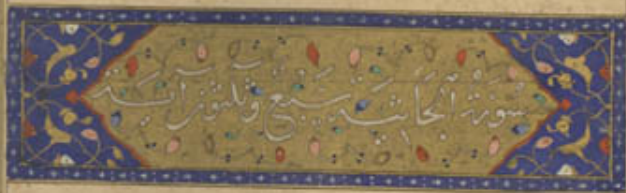 سورة الجاثية سبع وثلثون آية